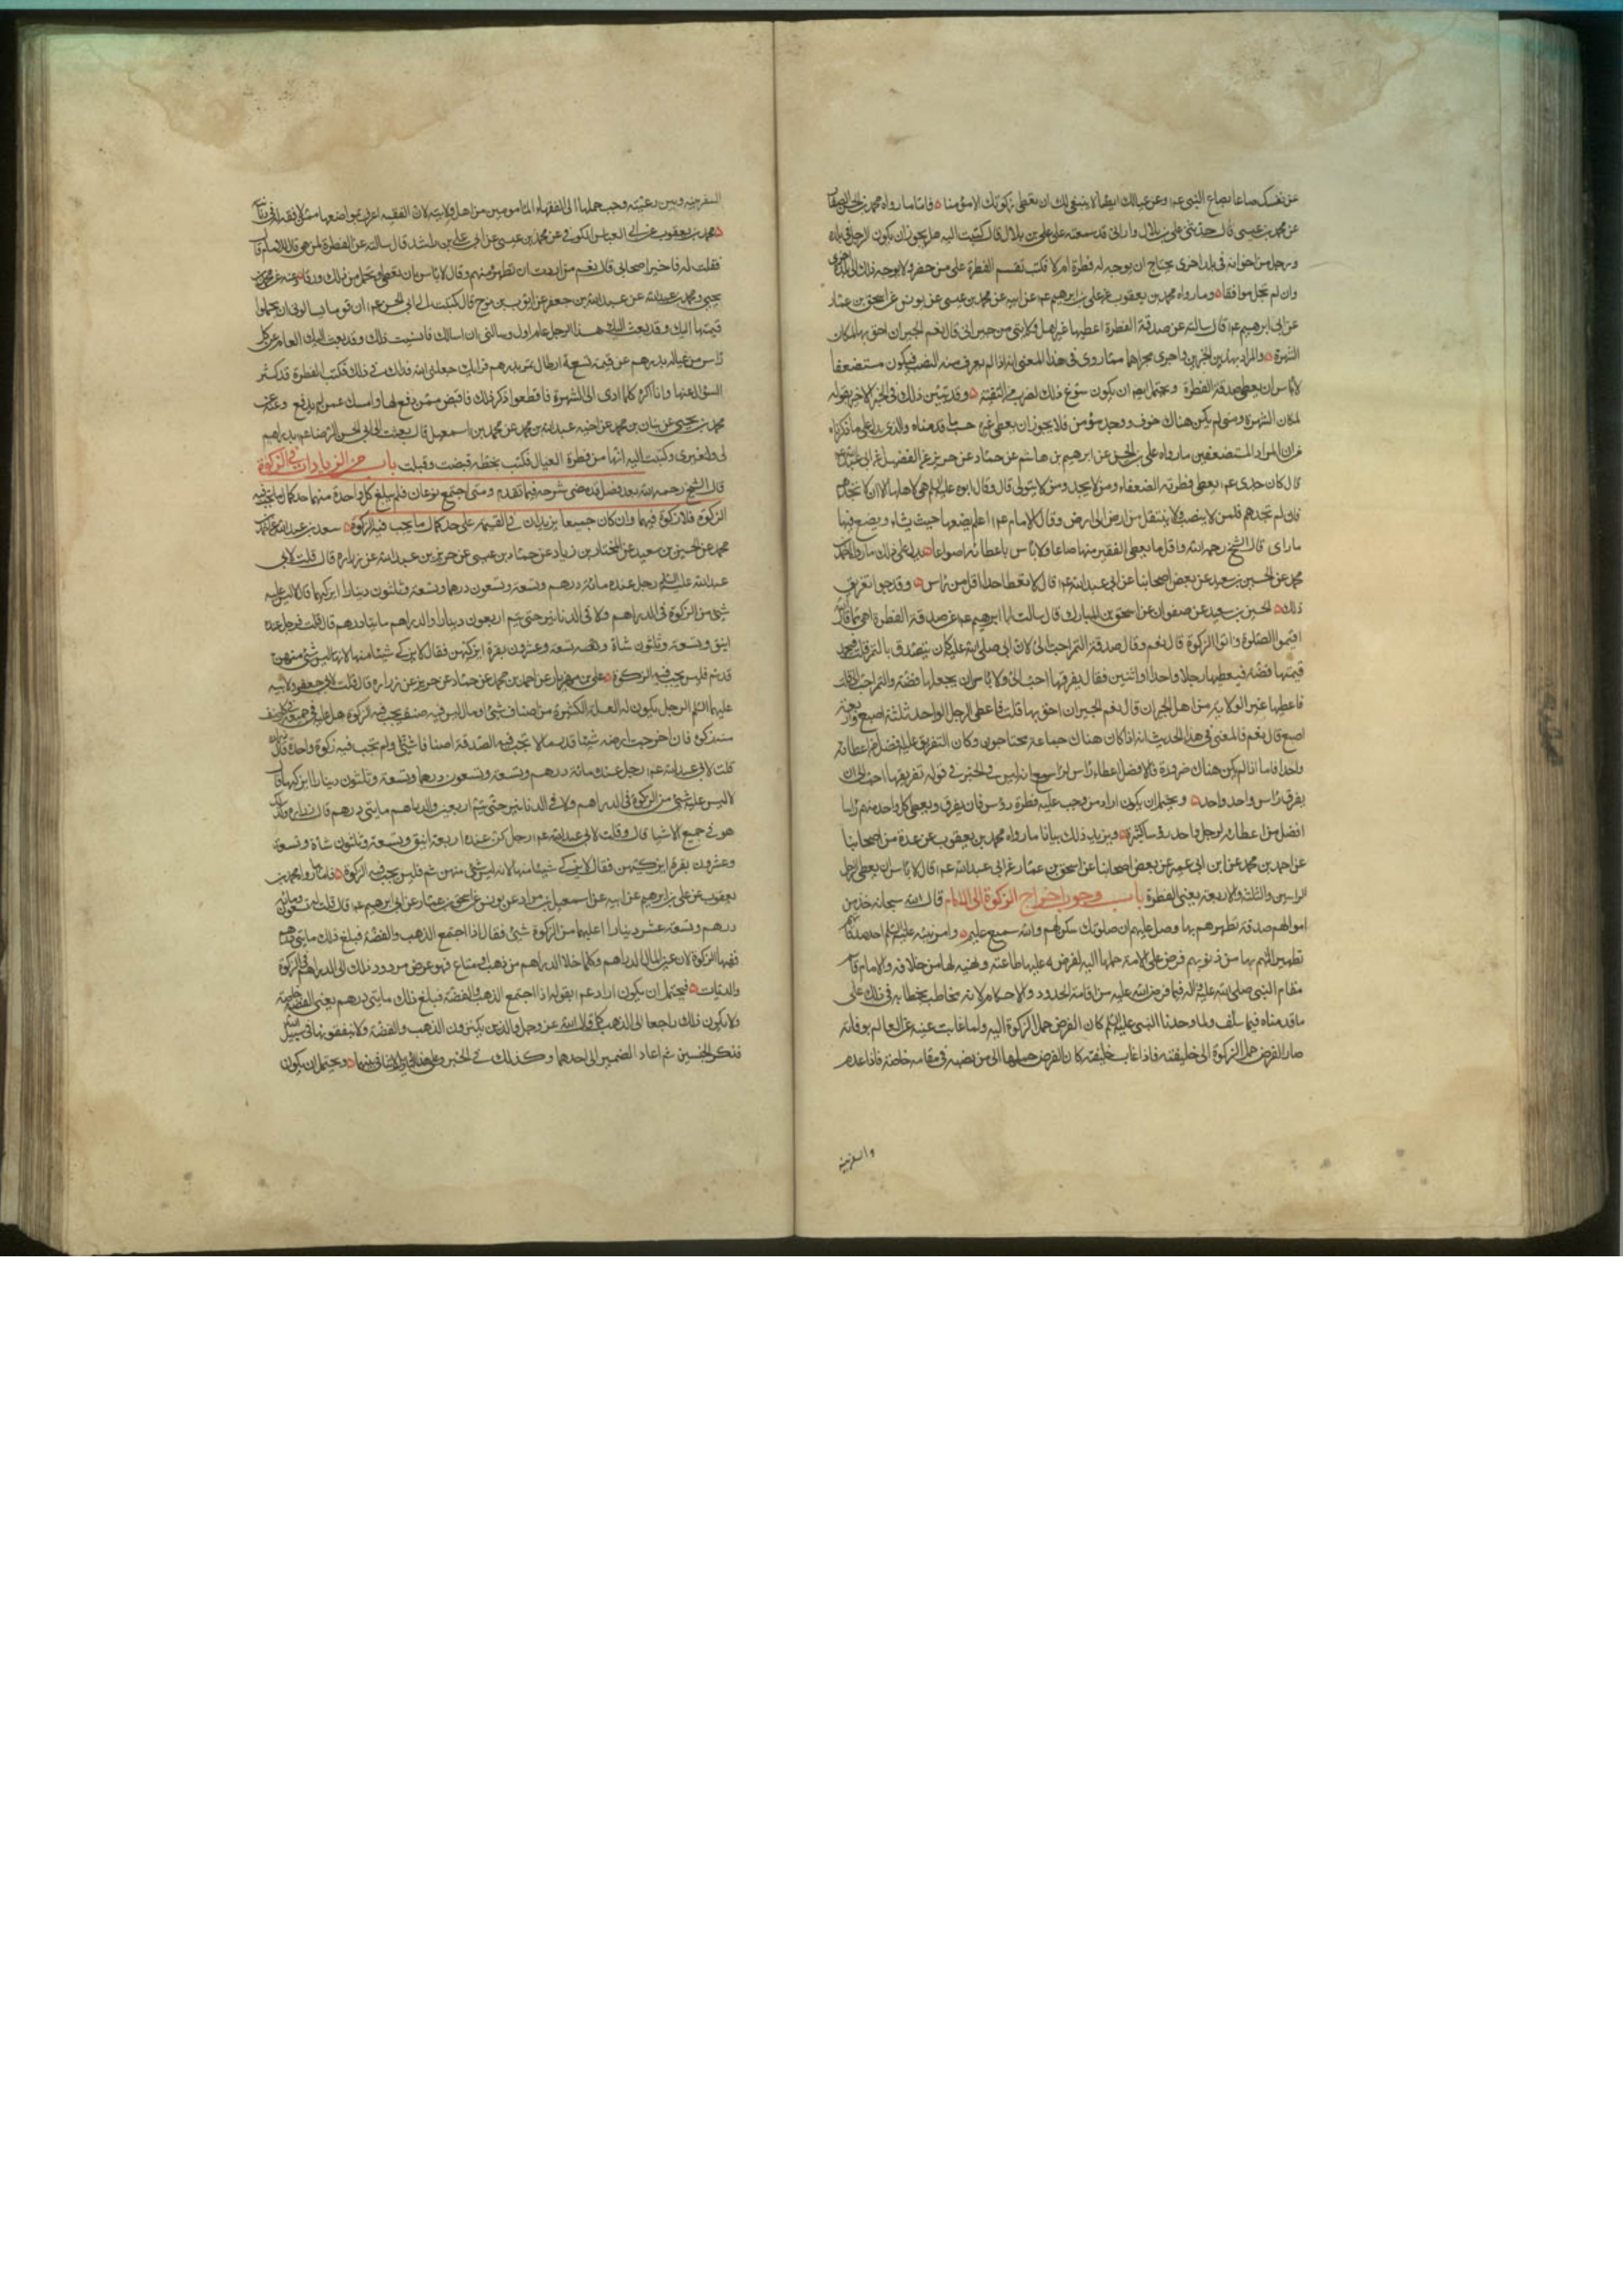 عن نفسك صاعا بصاع النبي عم وعن عيالك ايضا لا ينبغي لك ان تعطي زكوتك الا مؤمنا فاما ما رواه محمد بن الحسن الصفار
عن محمد بن عيسى قال حدثني علي بن بلال واراني قد سمعته من علي بن بلال قال كتبت اليه هل يجوز ان يكون الرجل في بلدة
ورجل من اخوانه في بلد اخرى يحتاج ان يوجه له فطرة ام لا فكتب تقسم الفطرة على من حضر ولا يوجه ذلك الى بلدة اخرى
وان لم تجد موافقا وما رواه محمد بن يعقوب عن علي بن ابرهيم عن ابيه عن محمد بن عيسى عن يونس عن اسحق بن عمار
عن ابي ابرهيم عم قال سالته عن صدقة الفطرة اعطيها غير اهل ولايتي من جيراني قال نعم الجيران احق بها لمكان
الشهرة والمراد بهذين الخبرين وما جرى مجراهما مما روي في هذا المعنى انه اذا لم يعرف منه النصب فيكون مستضعفا
لا باس ان يعطي صدقة الفطرة ويحتمل ايضا ان يكون سوغ ذلك لضرب من التقية وقد تبين ذلك في الخبر الاخير بقوله
لمكان الشهرة ومتى لم يكن هناك خوف ووجد مؤمن فلا يجوز ان يعطي غيره حسبما قدمناه والذي يدل على ما ذكرناه
من ان المراد المستضعفين ما رواه علي بن الحسن عن ابرهيم بن هاشم عن حماد عن حريز عن الفضيل عن ابي عبد الله عم
قال كان جدي عم يعطي فطرته الضعفاء ومن لا يجد ومن لا يتولى قال وقال ابوه عليه السلم هي لاهلها الا ان لا تجدهم
فان لم تجدهم فلمن لا ينصب ولا ينتقل من ارض الى ارض وقال الامام عم اعلم يضعها حيث يشاء ويضع فيها
ما راى قال الشيخ رحمه الله واقل ما يعطي الفقير منها صاعا ولا باس باعطائه اصواعا يدل على ذلك ما رواه احمد بن
محمد عن الحسين بن سعيد عن بعض اصحابنا عن ابي عبد الله عم قال لا تعط احدا اقل من راس وقد جوز تفريق
ذلك الحسين بن سعيد عن صفوان عن اسحق بن المبارك قال سالت ابا ابرهيم عم عن صدقة الفطرة اهي مما قال الله
اقيموا الصلوة واتوا الزكوة قال نعم وقال صدقة التمر احب الي لان ابي صلى الله عليه كان يتصدق بالتمر قلت فيجعل
قيمتها فضة فيعطيها رجلا واحدا او اثنين فقال يفرقها احب الي ولا باس ان يجعلها فضة والتمر احب الي قلت
فاعطيها غير الولاية من اهل الجيران قال نعم الجيران احق بها قلت فاعطي الرجل الواحد ثلثة اصيع واربعة
اصيع قال نعم فالمعنى في هذا الحديث انه اذا كان هناك جماعة محتاجون وكان التفريق عليهم افضل من اعطائه
واحدا فاما اذا لم يكن هناك ضرورة فالافضل اعطاء راس لراس مع انه ليس في الخبر في قوله تفريقها احب الي ان
يفرق راس واحد واحد ويحتمل ان يكون اراد من وجب عليه فطرة رؤس فان يفرق ويعطي كل واحد منهم راسا
افضل من اعطائه لرجل واحد رؤسا كثيرة ويزيد ذلك بيانا ما رواه محمد بن يعقوب عن عدة من اصحابنا
عن احمد بن محمد عن ابن ابي عمير عن بعض اصحابنا عن اسحق بن عمار عن ابي عبد الله عم قال لا باس ان يعطي الرجل
الراسين والثلث والاربعة يعني الفطرة باب وجوب اخراج الزكوة الى الامام قال الله سبحانه خذ من
اموالهم صدقة تطهرهم بها وصل عليهم ان صلوتك سكن لهم والله سميع عليم وامر نبيه عليه السلم اخذ صدقاتهم
تطهيرا لهم بها من ذنوبهم فرض على الامة حملها اليه لفرضه عليها طاعته ونهيه لها من خلافه والامام قائم
مقام النبي صلى الله عليه واله فيما فرض الله عليه من اقامة الحدود والاحكام لانه مخاطب بخطابه في ذلك على
ما قدمناه فيما سلف ولما وجدنا النبي عليه السلم كان الفرض حمل الزكوة اليه ولما غابت عينه عن العالم بوفاته
صار الفرض حمل الزكوة الى خليفته فاذا غاب خليفته كان الفرض حملها الى من نصبه في مقامه خاصة فاذا عدم
والسفراء بينه
السفراء بينه وبين رعيته وجب حملها الى الفقهاء المامونين من اهل ولايته لان الفقيه اعرف بموضعها ممن لا فقه له في ديانته
محمد بن يعقوب عن ابي العباس الكوفي عن محمد بن عيسى عن ابي علي بن راشد قال سالته عن الفطرة لمن هي قال للامام قال
فقلت له فاخبر اصحابي قال نعم من اردت ان تطهره منهم وقال لا باس بان تعطي وتحمل ثمن ذلك ورقا وعنه عن محمد بن
يحيى ومحمد بن عبد الله عن عبد الله بن جعفر عن ايوب بن نوح قال كتبت الى ابي الحسن عم ان قوما يسالوني ان يحملوا
قيمتها اليك وقد بعث اليك هذا الرجل عام اول وسالني ان اسالك فانسيت ذلك وقد بعث اليك العام عن كل
راس من عياله بدرهم عن قيمة تسعة ارطال تمر بدرهم فرايك جعلني الله فداك في ذلك فكتب الفطرة قد كثر
السؤال عنها وانا اكره كل ما ادى الى الشهرة فاقطعوا ذكر ذلك فاقبض ممن دفع لها وامسك عمن لم يدفع وعنه عن
محمد بن يحيى عن بنان بن محمد عن اخيه عبد الله بن محمد عن محمد بن اسمعيل قال بعثت الى ابي الحسن الرضا عم بدراهم
لي ولغيري وكتبت اليه انها من فطرة العيال فكتب بخطه قبضت وقبلت باب من الزيادات في الزكوة
قال الشيخ رحمه الله بعد فصل قد مضى شرحه فيما تقدم ومتى اجتمع نوعان فلم يبلغ كل واحدة منهما حد كمال ما تجب فيه
الزكوة فلا زكوة فيهما وان كان جميعا يزيدان في القيمة على حد كمال ما يجب فيه الزكوة سعد بن عبد الله عن احمد بن
محمد عن الحسين بن سعيد عن المختار بن زياد عن حماد بن عيسى عن حريز بن عبد الله عن زرارة قال قلت لابي
عبد الله عليه السلم رجل عنده مائة درهم وتسعة وتسعون درهما وتسعة وثلثون دينارا ايزكيهما قال لا ليس عليه
شيء من الزكوة في الدراهم ولا في الدنانير حتى يتم اربعون دينارا والدراهم مايتا درهم قال قلت فرجل عنده
اينق وتسعة وثلثون شاة وتسعة وعشرون بقرة ايزكيهن فقال لا يزكي شيئا منها لانها ليس شيء منهن
قد تم فليس يجب فيه الزكوة علي بن مهزيار عن احمد بن محمد عن حماد عن حريز عن زرارة قال قلت لابي جعفر ولابنه
عليهما السلم الرجل يكون له الغلة الكثيرة من اصناف شتى او مال ليس فيه صنف يجب فيه الزكوة هل عليه في جميعه
زكوة فان اخرجت ارضه شيئا قدر ما لا تجب فيه الصدقة اصنافا شتى ولم تجب فيه زكوة واحدة قال زرارة
قلت لابي عبد الله عم رجل عنده مائة درهم وتسعة وتسعون درهما وتسعة وثلثون دينارا ايزكيها قال
لا ليس عليه شيء من الزكوة في الدراهم ولا في الدنانير حتى يتم اربعين والدراهم مايتي درهم قال زرارة وكذلك
هو في جميع الاشياء قال وقلت لابي عبد الله عم رجل كن عنده اربعة اينق وتسعة وثلثون شاة وتسعة
وعشرون بقرة ايزكيهن فقال لا يزكي شيئا منها لانه ليس شيء منهن تم فليس يجب فيه الزكوة فاما ما رواه محمد بن
يعقوب عن علي بن ابرهيم عن ابيه عن اسمعيل بن مرار عن يونس عن اسحق بن عمار عن ابي ابرهيم عم قال قلت له تسعون ومائة
درهم وتسعة عشر دينارا اعليها من الزكوة شيء فقال اذا اجتمع الذهب والفضة فبلغ ذلك مايتي درهم
ففيها الزكوة لان عين المال الدراهم وكلما خلا الدراهم من ذهب او متاع فهو عرض مردود ذلك الى الدراهم في الزكوة
والديات فيحتمل ان يكون اراد عم بقوله اذا اجتمع الذهب والفضة فبلغ ذلك مايتي درهم يعني الفضة خاصة
ولا يكون ذلك راجعا الى الذهب كما قال الله عز وجل والذين يكنزون الذهب والفضة ولا ينفقونها في سبيل الله
فذكر الجنسين ثم اعاد الضمير الى احدهما وكذلك في الخبر وعلى هذا التاويل لا تنافي بينهما ويحتمل ان يكون